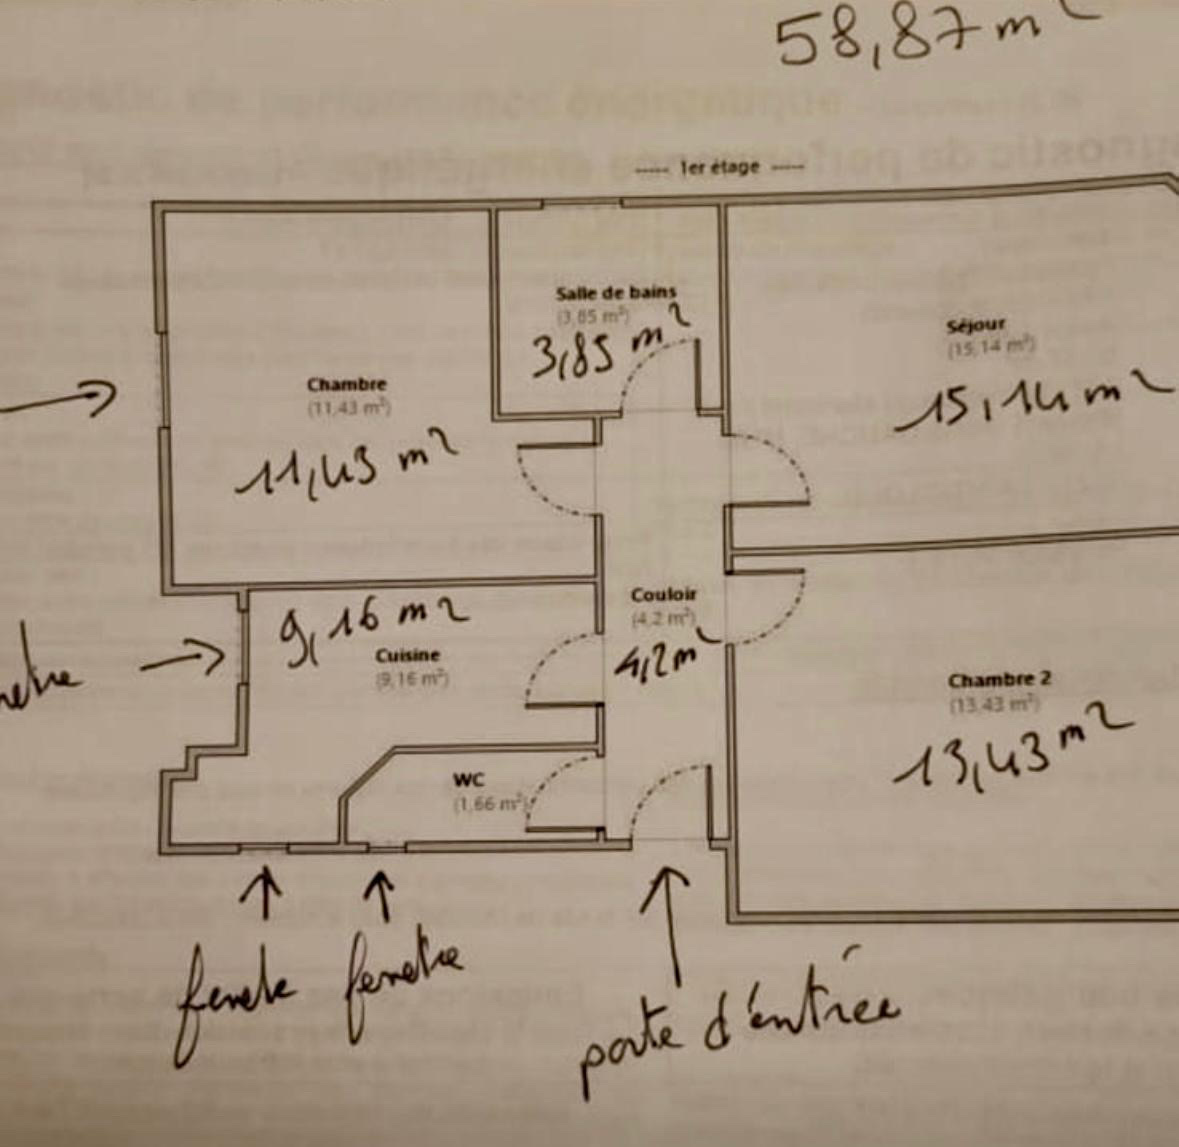 58,87 m²
----- 1er étage -----
Salle de bains
(3,85 m²)
3,85 m²
Séjour
(15,14 m²)
15,14 m²
Chambre
(11,43 m²)
11,43 m²
Couloir
(4,2 m²)
4,2 m²
9,16 m²
Cuisine
(9,16 m²)
Chambre 2
(13,43 m²)
13,43 m²
WC
(1,66 m²)
fenetre
fenetre
porte d'entrée